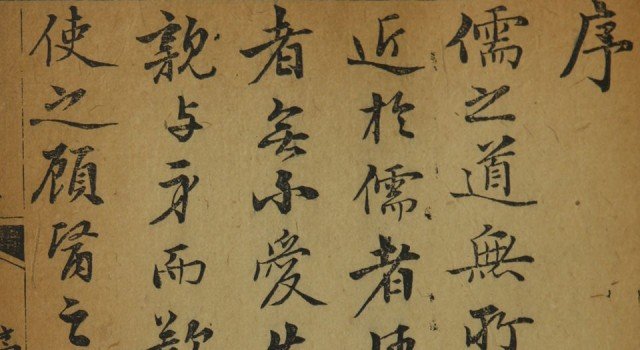 序
儒之道無所
近於儒者
者無不愛
親与身而
使之顧醫之